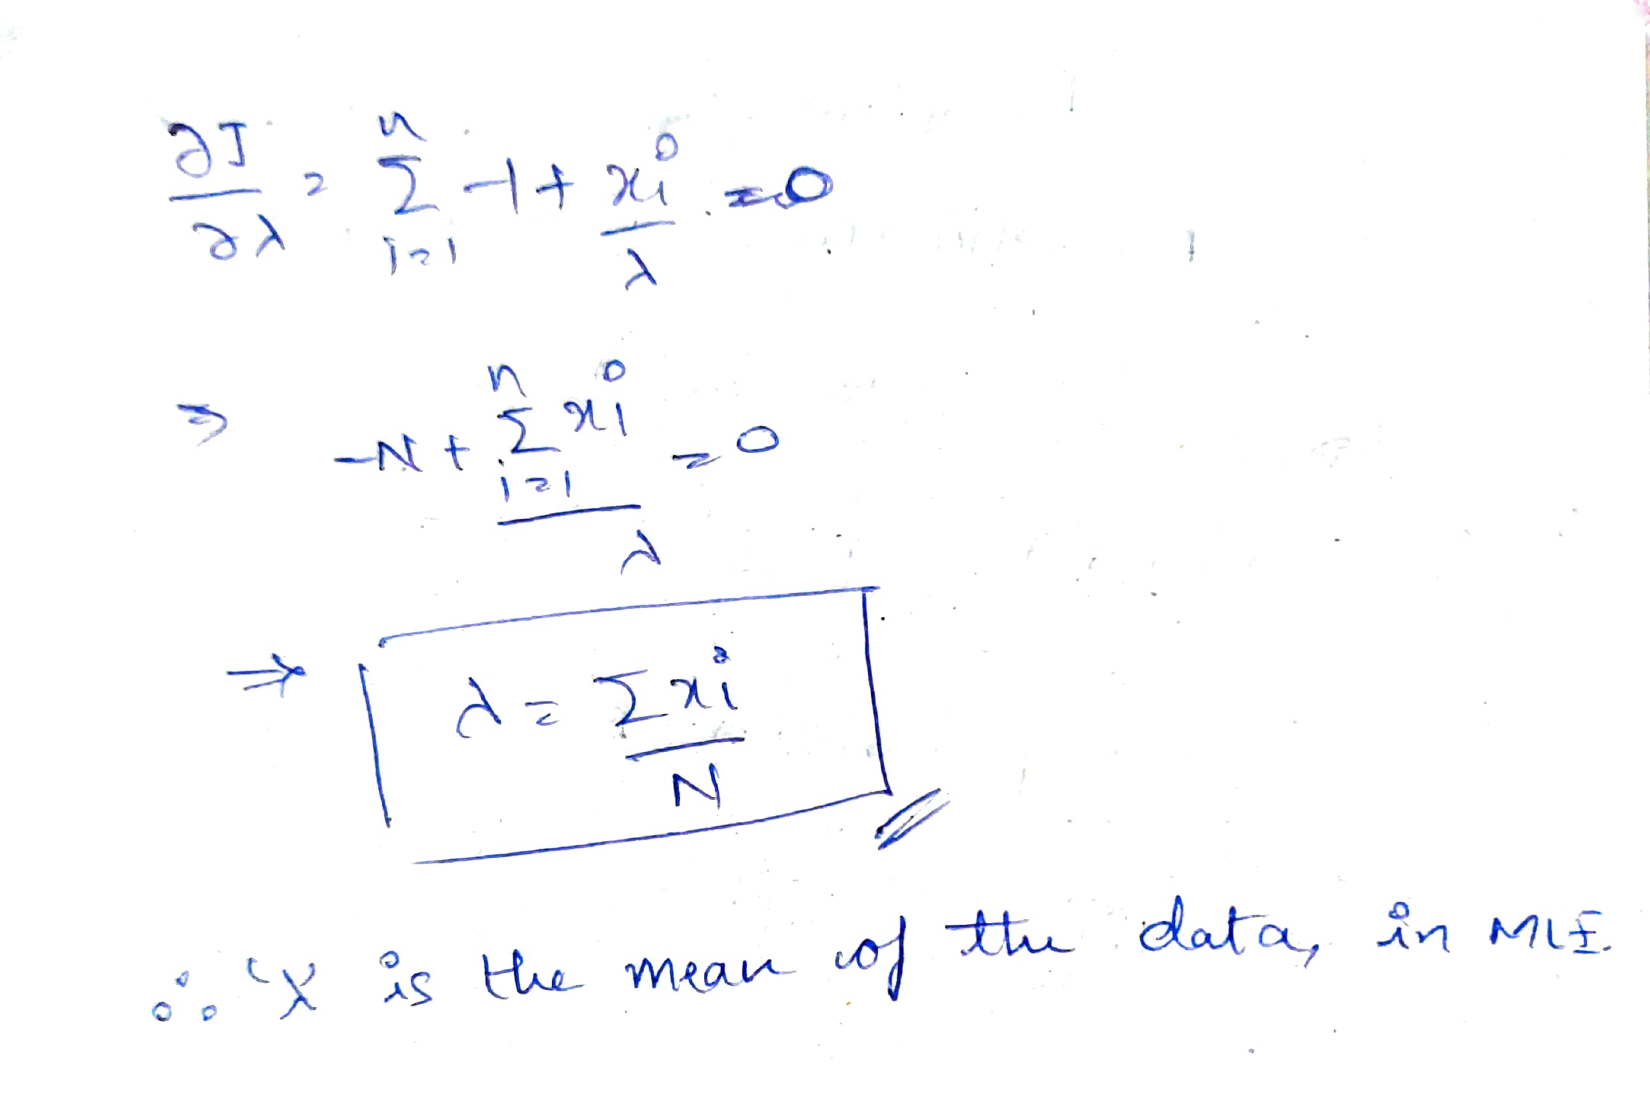 ∂J/∂λ = n Σ i=1 -1 + xi/λ = 0
⇒ -N + n Σ i=1 xi / λ = 0
⇒ λ = Σ xi / N
∴ 'λ' is the mean of the data, in MLE.